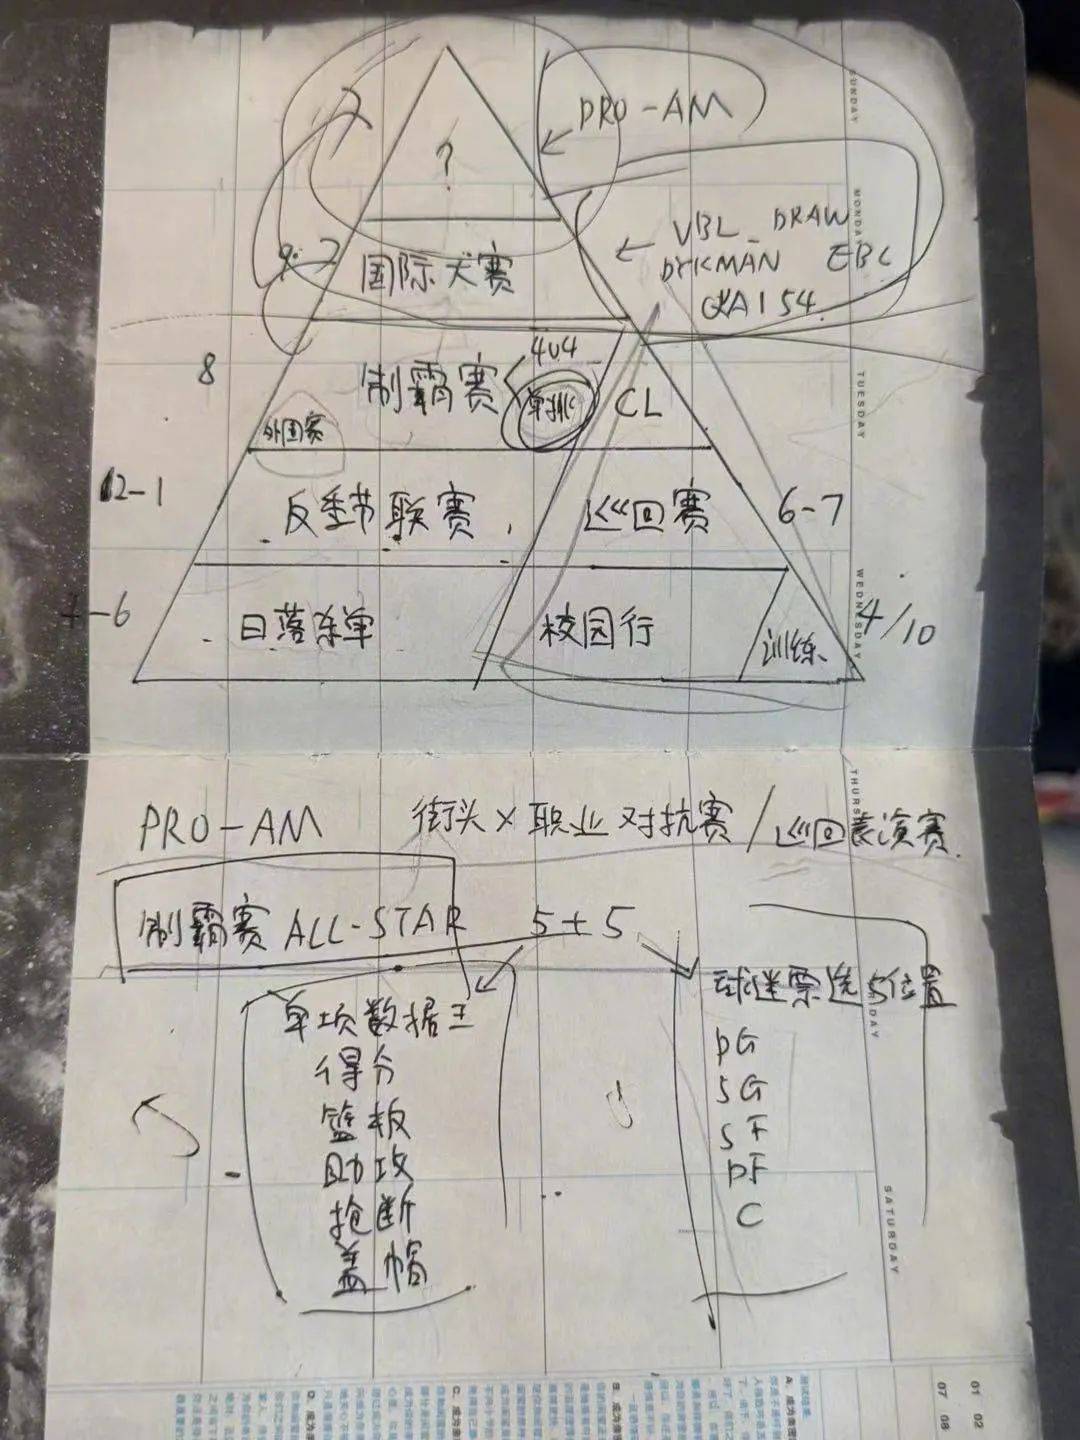 PRO-AM
?
9-2 国际大赛
VBL DRAW
DYKMAN EBC
QUAI 54
8 制霸赛 4V4 单挑 CL
外围赛
12-1 反季节联赛 巡回赛 6-7
-6 日落杀单 校园行 训练 4/10
PRO-AM 街头×职业对抗赛/巡回表演赛
制霸赛 ALL-STAR 5+5
单项数据王
得分
篮板
助攻
抢断
盖帽
球迷票选5位置
PG
SG
SF
PF
C
SUNDAY
MONDAY
TUESDAY
WEDNESDAY
THURS
DAY
SATURDAY
01 02
07 08